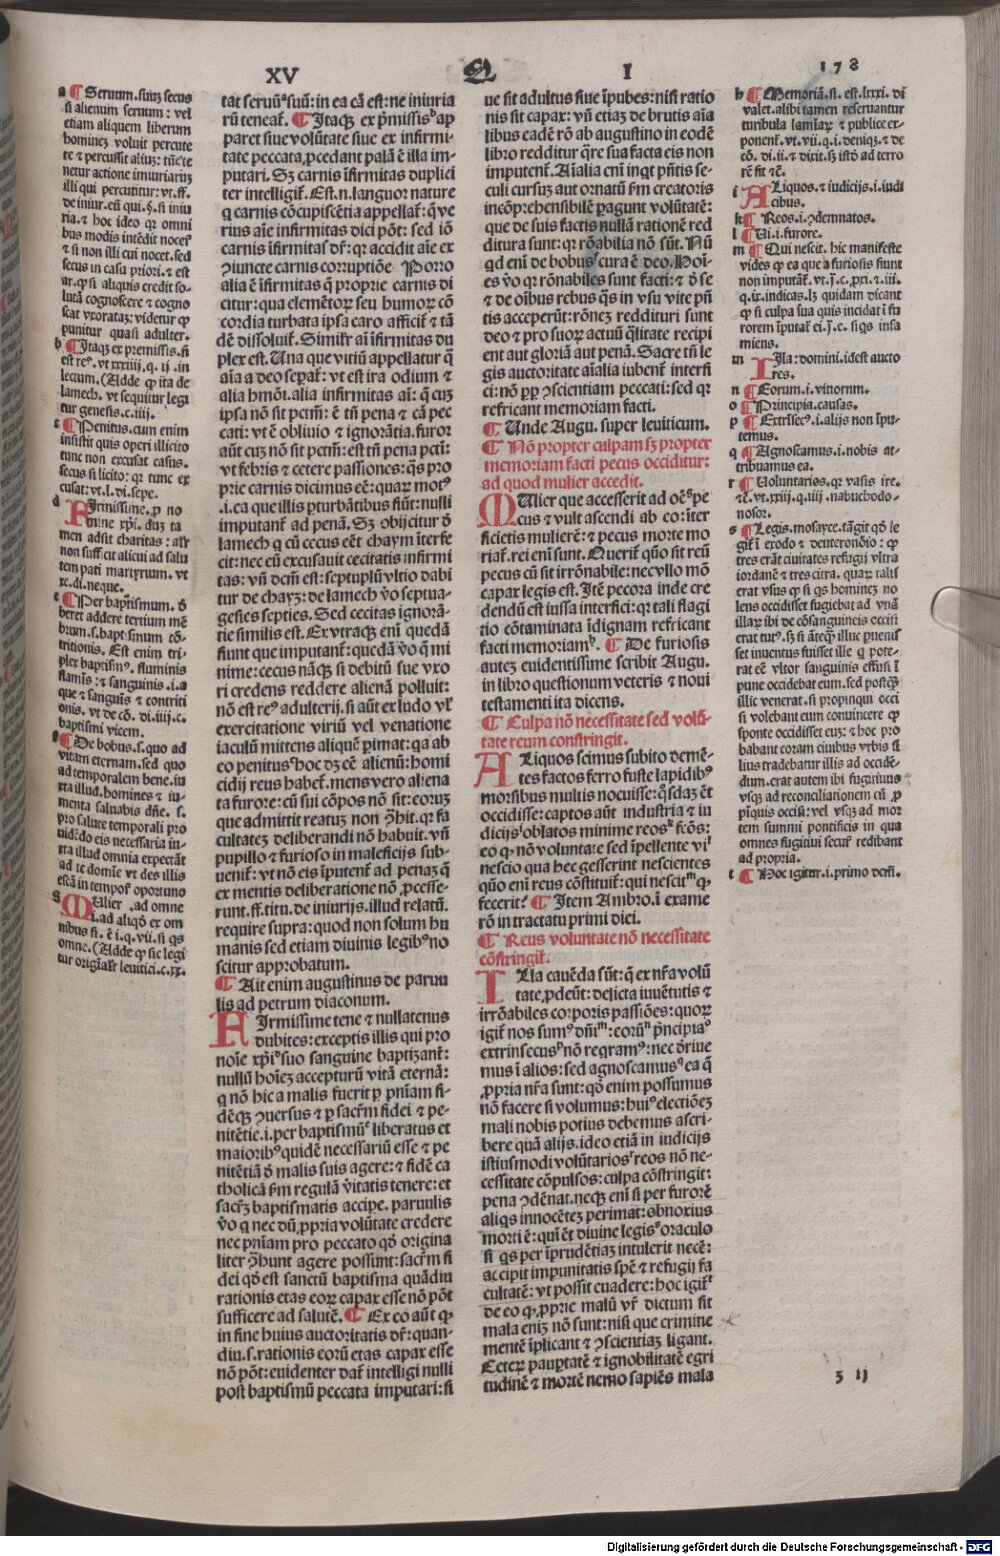 XV
Q
I
178
a ¶ Seruum.suuz secus
si alienum seruum: vel
etiam aliquem liberum
hominez voluit percute
re ⁊ percussit aliuz: tūc te
netur actione iniuriaruz
illi qui percutitur: vt.ff.
de iniur.eū qui.§.si iniu
ria.⁊ hoc ideo qꝛ omni
bus modis intēdit nocer̄
⁊ si non illi cui nocet.sed
secus in casu priori.⁊ est
ar.ꝙ si aliquis credit so-
lutā cognoscere ⁊ cogno
scat vxorataz: videtur ꝙ
punitur quasi adulter.
b ¶ Itaqz ex premissis.ñ
est reꝰ. vt xxxiiij.q. ij. in
lectum. (Adde ꝙ ita de
lamech. vt sequitur legi
tur genesis.c.iiij.
c ¶ Penitus.cum enim
insistit quis operi illicito
tunc non excusat casus.
secus si licito: qꝛ tunc ex
cusat: vt.l.di.sepe.
d Firmissime. ꝓ no
mine xp̄i. duz ta
men adsit charitas: alr̄
non sufficit alicui ad salu
tem pati martyrum. vt
xc.di.neque.
e ¶ Per baptismum. d̄
beret addere tertium mē
brum.s.baptismum cō-
tritionis. Est enim tri-
plex baptismꝰ. fluminis
flamīs: ⁊ sanguinis.i.a
que ⁊ sanguīs ⁊ contriti
onis. vt de cō. di.iiij.c.
baptismi vicem.
f ¶ De bobus.s.quo ad
vitam eternam.sed quo
ad temporalem bene.iu
xta illud.homines ⁊ iu-
menta saluabis dñe. s.
pro salute temporali pro
uidēdo eis necessaria iu-
xta illud omnia expectāt
ad te domie vt des illis
escā in tempor̄ oportuno
g Mulier .ad omne
i.ad aliqd̄ ex om
nibus si. ē i.q.vii.si qs
omne.(Adde ꝙ sic legi
tur origīalr̄ leuitici.c.xx.
tat seruūᵃ suū: in ea cā est: ne iniuria
rū teneat̄. ¶ Itaqz ex p̄missisᵇ ap
paret siue volūtate siue ex infirmi-
tate peccata ꝓcedant palā ē illa im-
putari. Sz carnis īfirmitas duplici
ter intelligit̄. Est.n.languor nature
q carnis cōcupiscētia appellat̄: q̄ ve
rius aīe infirmitas dici pōt: sed iō
carnis īfirmitas dr̄: qꝛ accidit aīe ex
ꝯiuncte carnis corruptiōe Porro
alia ē īfirmitas q̄ proprie carnis di
citur: qua elemētoꝝ seu humoꝝ cō
cordia turbata ipsa caro afficit̄ ⁊ tā
dē dissoluit̄. Similr̄ aī īfirmitas du
plex est. Una que vitiū appellatur q̄
aīa a deo sepat̄: vt est ira odium ⁊
alia hm̄oi. alia infirmitas aī: q̄ cuz
ipsa nō sit pctm̄: ē tñ pena ⁊ cā pec
cati: vt ē obliuio ⁊ ignorātia. furor
aūt cuz nō sit pctm̄: est tñ pena pcti:
vt febris ⁊ cetere passiones: q̄s pro
prie carnis dicimus eē: quaꝝ motꝰ
.i. ea que illis pturbātibus fiūt: nulli
imputant̄ ad penā. Sz obijcitur d̄
lamech q cū cecus eēt chaym īterfe
cit: nec eū excusauit cecitatis infirmi
tas: vñ dcm̄ est: septuplū vltio dabi
tur de chayz: de lamech v̄o septua-
gesies septies. Sed cecitas ignorā-
tie similis est. Ex vtraqz eni quedā
fiunt que imputant̄: quedā v̄o q̄ mi
nime: cecus nāqz si debitū sue vxo
ri credens reddere alienā polluit:
nō est reꝰ adulterij. si aūt ex ludo vl̄
exercitatione viriū vel venatione
iaculū mittens aliquē pimat: qa ab
eo penitusᶜ hoc dz eē alienū: homi
cidij reus habet̄. mens vero aliena
ta furore: cū sui cōpos nō sit: eoruz
que admittit reatuz non ꝯhit. qꝛ fa
cultatez deliberandi nō habuit. vñ
pupillo ⁊ furioso in maleficijs sub-
uenit̄: vt nō eis īputent̄ ad penaz q̄
ex mentis deliberatione nō ꝓcesse-
runt. ff. titu. de iniurijs. illud relatū.
require supra: quod non solum hu
manis sed etiam diuinis legibꝰ no
scitur approbatum.
¶ Ait enim augustinus de paruu
lis ad petrum diaconum.
Firmissime tene ⁊ nullatenus
dubites: exceptis illis qui pro
noīe xp̄iᵈ suo sanguine baptizant̄:
nullū hoīez accepturū vitā eternā:
q nō hic a malis fuerit ꝑ pnīam fi-
dēqz ꝯuersus ⁊ ꝑ sacr̄m fidei ⁊ pe-
nitētie.i.per baptismūᵉ liberatus et
maioribꝰ quidē necessariū esse ⁊ pe
nitētiā d̄ malis suis agere: ⁊ fidē ca
tholicā ẜm regulā v̄itatis tenere: et
sacr̄z baptismatis accipe. paruulis
v̄o q nec dū ꝓpria volūtate credere
nec pnīam pro peccato qd̄ origina
liter ꝯhunt agere possunt: sacr̄m fi
dei qd̄ est sanctū baptisma quādiu
rationis etas eoꝝ capax esse nō pōt
sufficere ad salutē. ¶ Ex eo aūt ꝙ
in fine huius auctoritatis dr̄: quan-
diu.s.rationis eorū etas capax esse
nō pōt: euidenter dat̄ intelligi nulli
post baptismū peccata imputari: si
ue sit adultus siue īpubes: nisi ratio
nis sit capax: vñ etiaz de brutis aīa
libus eadē rō ab augustino in eodē
libro redditur q̄re sua facta eis non
imputent̄. Aīalia eni inqt pñtis se-
culi cursuz aut ornatū ẜm creatoris
incōprehensibilē pagunt volūtatē:
que de suis factis nullā rationē red
ditura sunt: qꝛ rōnabilia nō sūt. Nū
qd eni de bobusᶠ cura ē deo. Hoīes
v̄o qꝛ rōnabiles sunt facti: ⁊ d̄ se
⁊ de oībus rebus q̄s in vsu vite pñ
tis acceperūt: rōnez reddituri sunt
deo ⁊ pro suoꝝ actuū q̄litate recipi
ent aut gloriā aut penā. Sacre tñ le
gis auctoritate aīalia iubent̄ interfi
ci: nō ꝓpter ꝯscientiam peccati: sed qꝛ
refricant memoriam facti.
¶ Unde Augu. super leuiticum.
¶ Nō propter culpam sz propter
memoriam facti pecus occiditur:
ad quod mulier accedit.
Mulier que accesserit ad oēᵍ pe
cus ⁊ vult ascendi ab eo: īter
ficietis mulierē: ⁊ pecus morte mo
riat̄. rei eni sunt. Querit̄ quō sit reū
pecus cū sit irrōnabile: nec vllo mō
capax legis est. Itē pecora inde cre
dendū est iussa interfici: qꝛ tali flagi
tio cōtaminata īdignam refricant
facti memoriamʰ. ¶ De furiosis
autez euidentissime scribit Augu.
in libro questionum veteris ⁊ noui
testamenti ita dicens.
¶ Culpa nō necessitate sed volū-
tate reum constringit.
Aliquos scimus subito demē-
tes factos ferro fuste lapidibꝰ
morsibus multis nocuisse: q̄sdaz et
occidisse: captos aūt industria ⁊ iu
dicijsⁱ oblatos minime reosᵏ fcōs:
eo ꝙ nō voluntate sed īpellente viˡ
nescio qua hec gesserint nescientes
quō eni reus cōstituit̄: qui nescitᵐ ꝙ
fecerit? ¶ Item Ambro.i exame
rō in tractatu primi diei.
¶ Reus voluntate nō necessitate
cōstringit̄.
Illa cauēda sūt: q̄ ex nr̄a volū
tate ꝓdeūt: delicta iuuētutis ⁊
irrōabiles corporis passiōes: quoꝝ
igit̄ nos sumꝰ dñiᵐ: eorūⁿ p̄ncipiaᵒ
extrinsecusᵖ nō reqramꝰ: nec d̄riue
mus ī alios: sed agnoscamusᑫ ea q̄
ꝓpria nr̄a sunt: qd̄ enim possumus
nō facere si volumus: huiꝰ electiōez
mali nobis potius debemus ascri-
bere quā alijs. ideo etiā in iudicijs
istiusmodi volūtariosʳ reos nō ne-
cessitate cōpulsos: culpa cōstringit:
pena ꝯdēnat. neqz eni si per furorē
aliqs innocētez perimat: obnoxius
morti ē: qui et diuine legisˢ oraculo
si qs per īprudētiaz intulerit necē:
accipit impunitatis spē ⁊ refugij fa
cultatē: vt possit euadere: hoc igit̄ᵗ
de eo ꝙ ꝓprie malū vr̄ dictum sit
mala enīz nō sunt: nisi que crimine
mentē īplicant ⁊ ꝯscientiaz ligant.
Ceteꝝ pauptatē ⁊ ignobilitatē egri
tudinē ⁊ mortē nemo sapiēs mala
h ¶ Memoriā.ff. est.lxxi. di
valet.alibi tamen reseruantur
turibula lamīaꝝ ⁊ publice ex-
ponent̄. vt.vii.q.i.deniqz.⁊ de
cō. di.ii.⁊ dixit.sz istō ad terro
rē fit ⁊c̄.
i Aliquos.⁊ iudicijs.i.iudi
cibus.
k ¶ Reos.i.ꝯdemnatos.
l ¶ Vi.i.furore.
m ¶ Qui nescit. hic manifeste
vides ꝙ ea que a furiosis fiunt
non imputāt̄. vt.j.c. ꝓxi.⁊.iii.
q.ix.indicas.lz quidam dicant
ꝙ si culpa sua quis incidat ī fu
rorem īputat̄ ei.j.c.si q̄s insa
miens.
m Illa: domini.idest aucto
res.
n ¶ Eorum.i.vitiorum.
o ¶ Principia.causas.
p ¶ Extrīsecꝰ.i.alijs non īpu-
temus.
q ¶ Agnoscamus.i.nobis at-
tribuamus ea.
r ¶ Voluntarios.qꝛ vasis ire.
⁊c̄.vt.xxij.q.iiij.nabuchodo-
nosor.
s ¶ Legis.mosayce.tāgit qd̄ le
git̄ ī exodo ⁊ deuteronōio: ꝙ
tres erāt ciuitates refugij vltra
iordanē ⁊ tres citra. quaꝝ talis
erat vsus ꝙ si qs hominez no
lens occidisset fugiebat ad vnā
illaꝝ ibi de cōsanguineis occisi
erat tutꝰ.sz si āteqz illuc ꝑuenis
set inuentus fuisset ille q pote-
rat eē vltor sanguinis effusi ī
pune occidebat eum.sed postqz
illic venerat.si propinqui occi
si volebant eum conuincere ꝙ
sponte occidisset euz: ⁊ hoc pro
babant coram ciuibus vrbis il
lius tradebatur illis ad occidē-
dum.erat autem ibi fugitiuus
vsqz ad reconciliationem cū ꝓ
pīquis occisi: vel vsqz ad mor
tem summi pontificis in qua
omnes fugitiui secur̄ redibant
ad propria.
t ¶ Hoc igitur.i.primo dcm̄.
3 ij
Digitalisierung gefördert durch die Deutsche Forschungsgemeinschaft - DFG